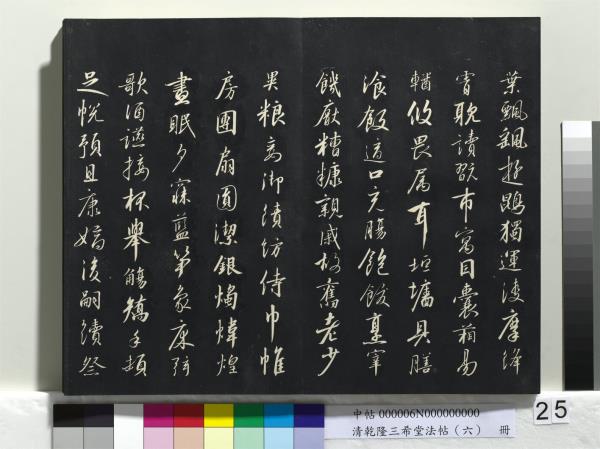 葉飄飖遊鵾獨運淩摩絳
霄耽讀翫市寓目囊箱易
輶攸畏属耳垣墉具膳
飡飯適口充腸飽飫烹宰
饑厭糟糠親戚故舊老少
異粮妾御績紡侍巾帷
房團扇圓潔銀燭煒煌
晝眠夕寐藍笋象床弦
歌酒讌接杯舉觴矯手頓
足悅預且康嫡後嗣續祭
中帖 000006N000000000
清乾隆三希堂法帖（六） 冊
25